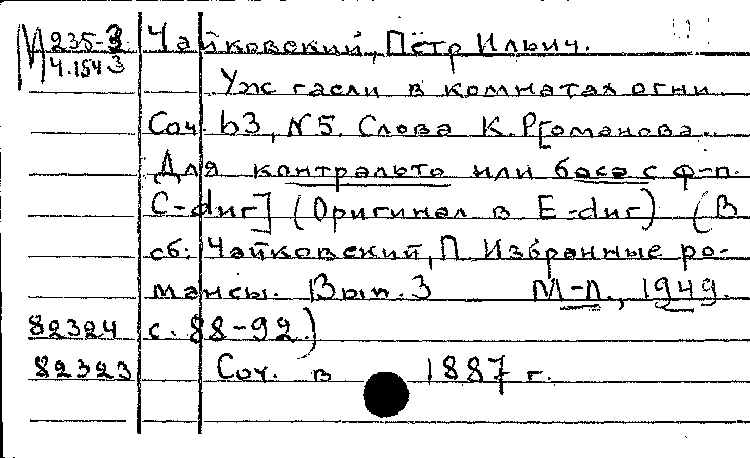 М 235-3 Чайковский, Пётр Ильич.
Ч.154 3 Уж гасли в комнатах огни.
Соч. 63, N 5. Слова К. Р[оманова.
Для контральто или баса с ф-п.
C-dur] (Оригинал в E-dur) (В
сб: Чайковский, П. Избранные ро-
мансы. Вып. 3 М-Л., 1949.
82324 с. 88-92.)
82323 Соч. в 1887 г.